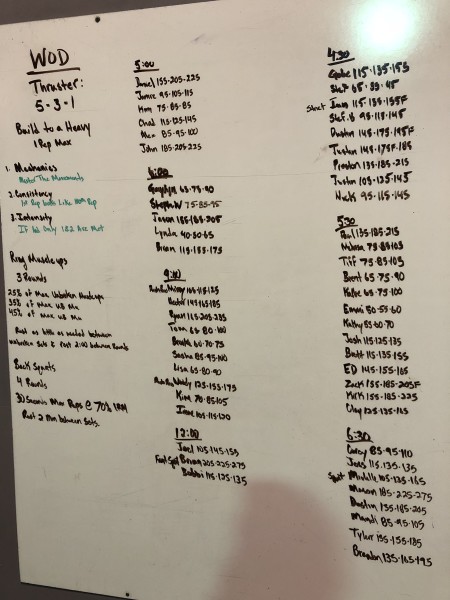 WOD
Thruster:
5-3-1
Build to a Heavy
1 Rep Max
1. Mechanics
Master The Movements
2. Consistency
1st Rep looks Like 100th Rep
3. Intensity
If 1&2 Are Met
Ring Muscleups
3 Rounds
25% of Max Unbroken Muscleups
35% of Max UB Mu
45% of Max UB Mu
Rest as little as needed between
unbroken Sets & Rest 2:00 between Rounds
Back Squats
4 Rounds
30 Seconds Max Reps @ 70% 1RM
Rest 2 Min between Sets.
5:00
155-205-225
95-105-115
75-85-85
Chad 115-125-145
85-95-100
John 185-205-225
65-75-90
75-85-95
Jason 185-185-205
Lynda 40-50-65
Brian 115-155-175
9:00
105-115-125
Hector 145-165-185
Ryan 165-205-235
Tom 65-80-100
60-70-75
Sasha 85-95-100
Lisa 65-80-90
125-155-175
Kim 70-85-105
105-115-120
12:00
Joel 105-145-155
Front Squat 205-225-275
Bobbi 115-125-135
4:30
Gabe 115-135-155
Stef 65-85-95
115-135-155F
Stef. S 95-115-145
Dustin 145-175-195F
145-175F-185
Preston 135-185-215
Justin 105-125-145
Nick 95-115-145
5:30
Paul 135-185-215
Melissa 75-85-105
Tiff 75-85-105
Brent 65-75-90
65-75-100
Emmi 50-55-60
Kathy 55-60-70
Josh 115-125-135
Brett 115-135-155
ED 145-155-165
Zack 155-185-205F
Kirk 155-185-225
Clay 125-135-165
6:30
Corey 85-95-110
115-135-135
Michelle 105-125-165
Mason 185-225-275
Dustin 135-185-205
Mandi 85-95-105
Tyler 135-155-185
Brandon 135-165-195